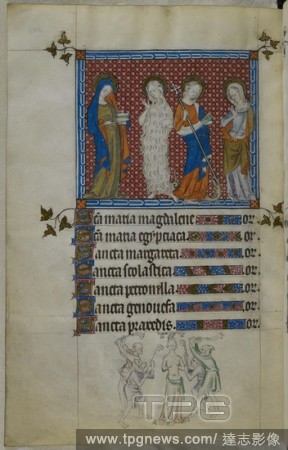 Sca maria magdalene or.
Sca maria egyptiaca or.
Sancta margareta or.
Sancta scolastica or.
Sancta petronilla or.
Sancta genovefa or.
Sancta praxedis or.
TPG
www.tpgnews.com / 達志影像